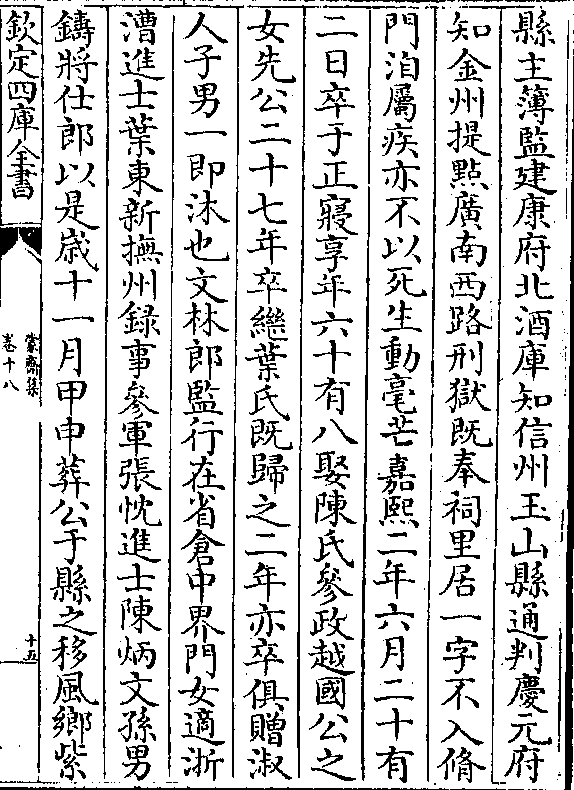 縣主簿監建康府北酒庫知信州玉山縣通判慶元府
知金州提點廣南西路刑獄既奉祠里居一字不入脩
門洎屬疾亦不以死生動毫芒嘉熙二年六月二十有
二日卒于正寢享年六十有八娶陳氏參政越國公之
女先公二十七年卒繼葉氏既歸之二年亦卒俱贈淑
人子男一即沐也文林郎監行在省倉中界門女適浙
漕進士葉東新撫州録事參軍張忱進士陳炳文孫男
鑄將仕郎以是嵗十一月甲申葬公于縣之移風鄉紫
欽定四庫全書
蒙齋集
卷十八
十五